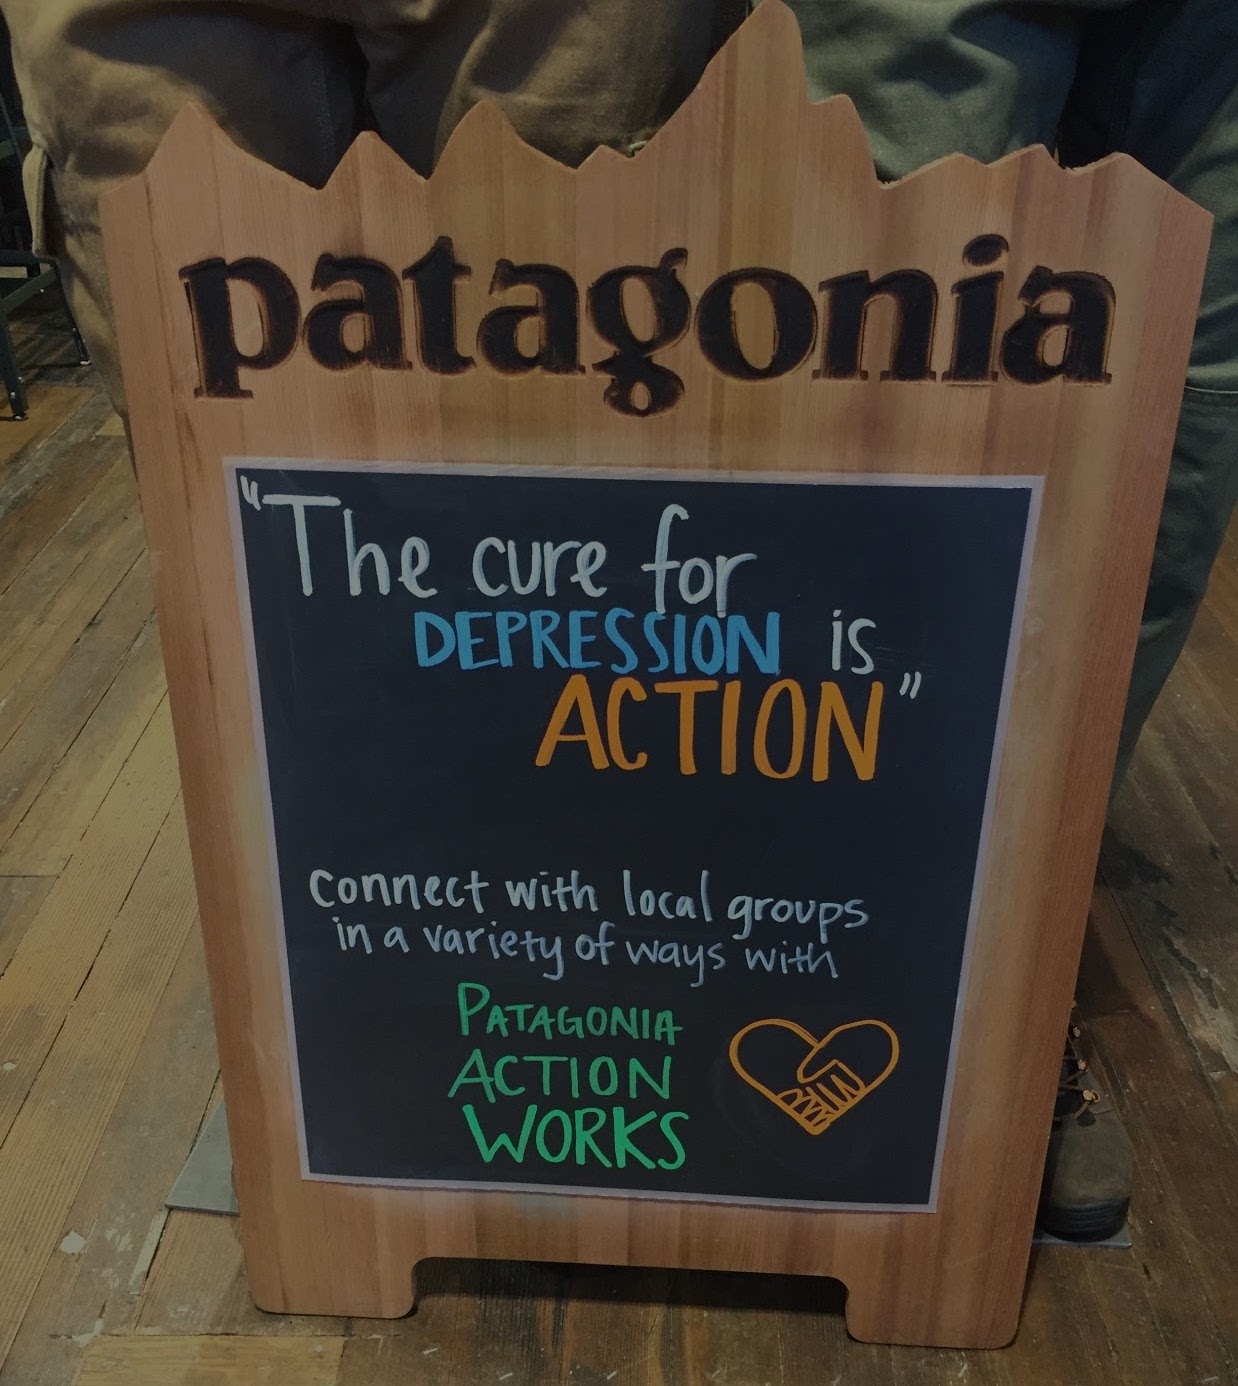 patagonia
"The cure for
DEPRESSION is
ACTION"
connect with local groups
in a variety of ways with
PATAGONIA
ACTION
WORKS